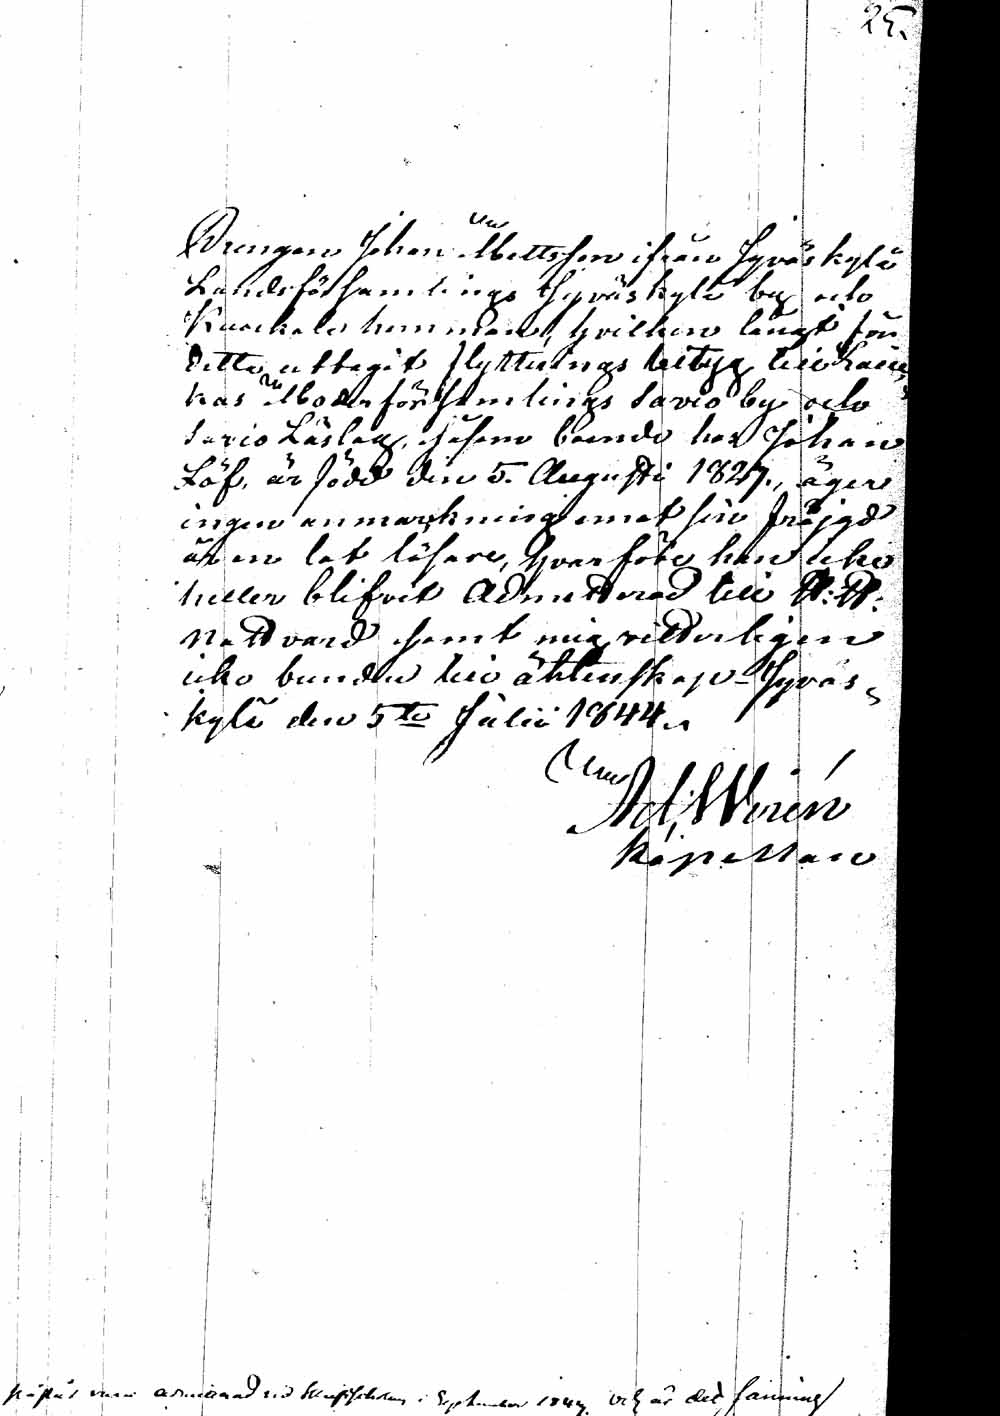 25.
Drengen Johan Mattsson ifrån Jyväskylä
Landsförsamlings Jyväskylä by och
Kuokkala hemman, hvilken långt för
detta uttagit flyttnings betyg till Lau-
kas Moderförsamlings Savio by och
Savio Läslag, såsom boende hos Johan
Löf, är född den 5. Augusti 1827., äger
ingen anmärkning emot sin fräjgd
är en lat läsare, hvarföre han icke
heller blifvit Admitterad till H: H:
Nattvard samt mig vetterligen
icke bunden till äktenskap - Jyväs-
kylä den 5te Julii 1844.
Ad, Wirén
Kapellan
September 1844, och är det